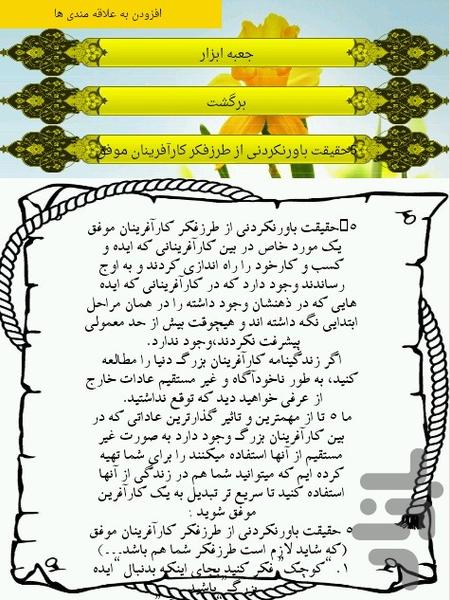 افزودن به علاقه مندی ها
جعبه ابزار
برگشت
5حقیقت باورنکردنی از طرزفکر کارآفرینان موفق
۵حقیقت باورنکردنی از طرزفکر کارآفرینان موفق
یک مورد خاص در بین کارآفرینانی که ایده و
کسب و کارخود را راه اندازی کردند و به اوج
رساندند وجود دارد که در کارآفرینانی که ایده
هایی که در ذهنشان وجود داشته را در همان مراحل
ابتدایی نگه داشته اند و هیچوقت بیش از حد معمولی
پیشرفت نکردند،وجود ندارد.
اگر زندگینامه کارآفرینان بزرگ دنیا را مطالعه
کنید، به طور ناخودآگاه و غیر مستقیم عادات خارج
از عرفی خواهید دید که توقع نداشتید.
ما ۵ تا از مهمترین و تاثیر گذارترین عاداتی که در
بین کارآفرینان بزرگ وجود دارد به صورت غیر
مستقیم از آنها استفاده میکنند را برای شما تهیه
کرده ایم که میتوانید شما هم در زندگی از آنها
استفاده کنید تا سریع تر تبدیل به یک کارآفرین
موفق شوید :
۵ حقیقت باورنکردنی از طرزفکر کارآفرینان موفق
(که شاید لازم است طرزفکر شما هم باشد...)
۱. “کوچک” فکر کنید بجای اینکه بدنبال “ایده
بزرگ” باشید
بازار